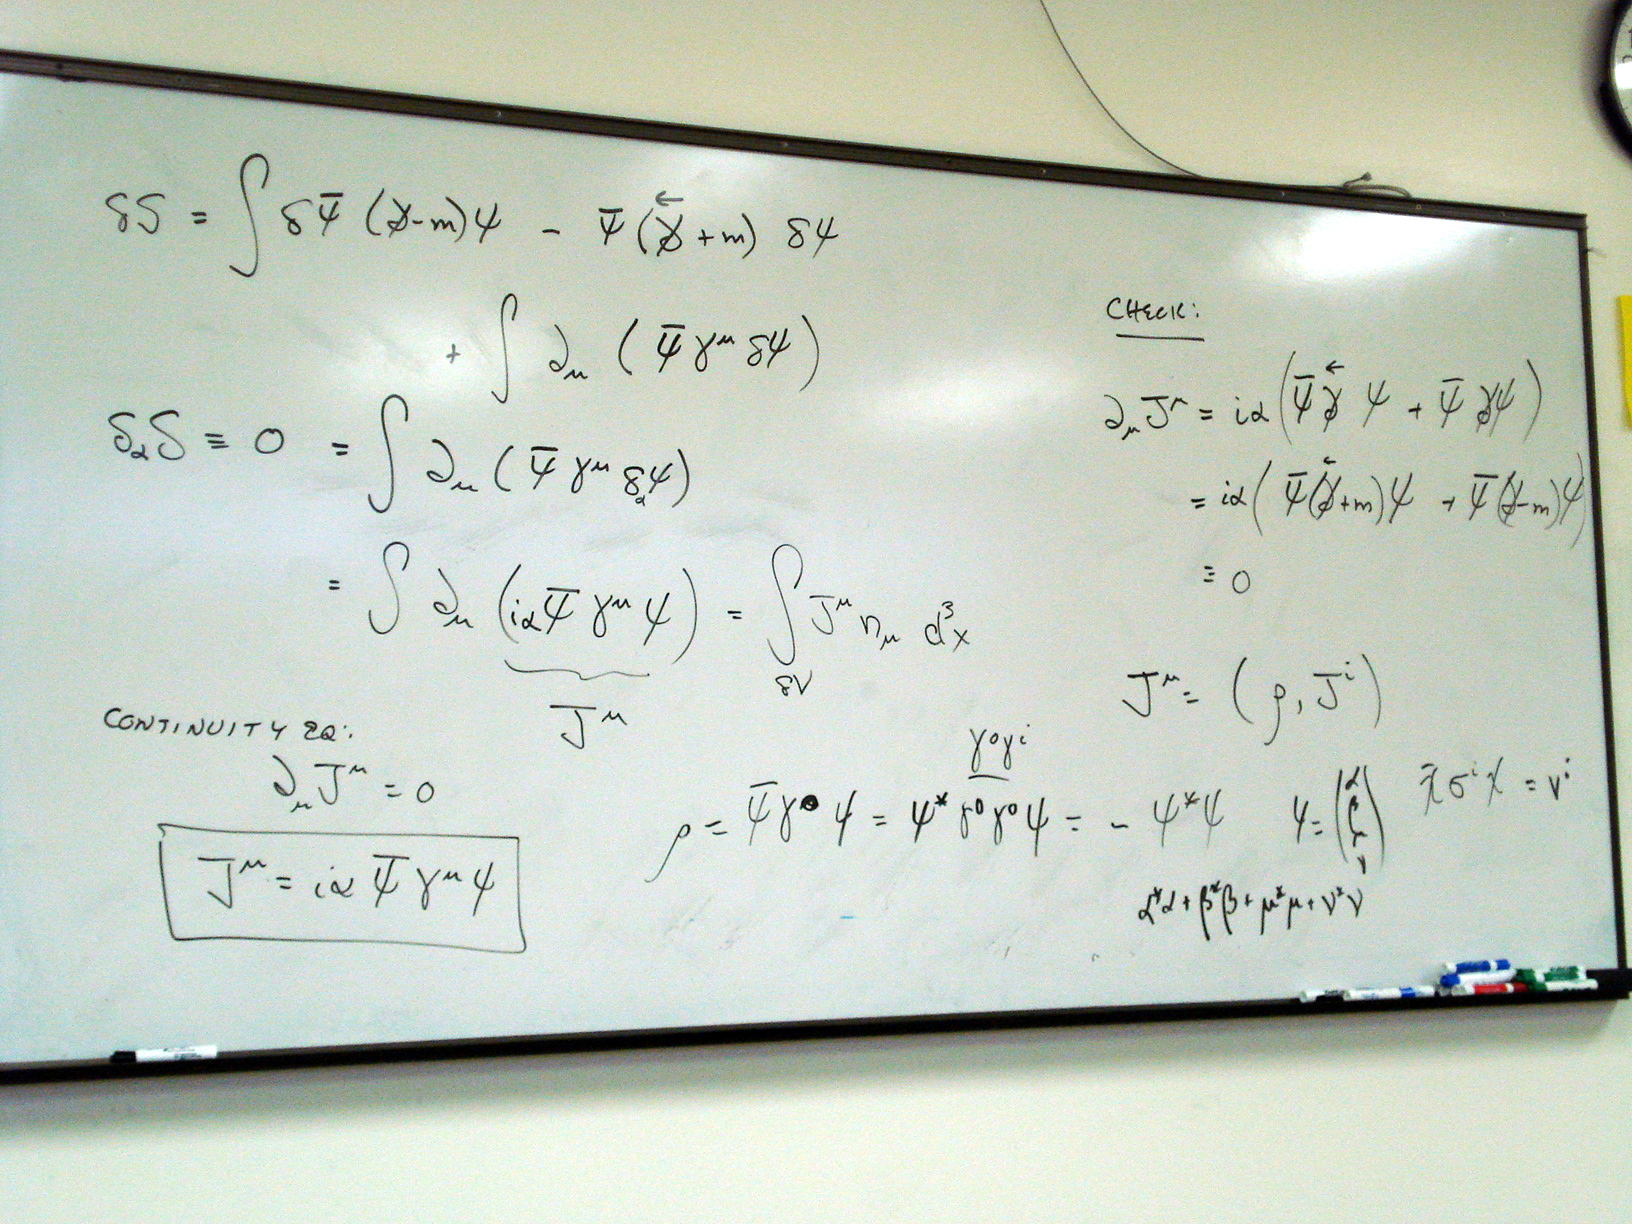 δS = ∫ δΨ̄ (∂̸-m)Ψ - Ψ̄ (∂̸⃖ + m) δΨ
+ ∫ ∂μ ( Ψ̄ γ^μ δΨ )
δ_αS ≡ 0 = ∫ ∂μ ( Ψ̄ γ^μ δ_αΨ )
= ∫ ∂μ ( iα Ψ̄ γ^μ Ψ ) = ∫_δV J^μ n_μ d³x
J^μ
CONTINUITY EQ:
∂μ J^μ = 0
J^μ = iα Ψ̄ γ^μ Ψ
CHECK:
∂μ J^μ = iα ( Ψ̄ ∂̸⃖ Ψ + Ψ̄ ∂̸Ψ )
= iα ( Ψ̄(∂̸⃖+m)Ψ + Ψ̄(∂̸-m)Ψ )
≡ 0
J^μ = ( ρ, J^i )
γ⁰γ^i
ρ = Ψ̄γ⁰Ψ = Ψ*γ⁰γ⁰Ψ = - Ψ*Ψ Ψ = (α β μ ν) χ̄ σ^i χ = v^i
α*α + β*β + μ*μ + ν*ν